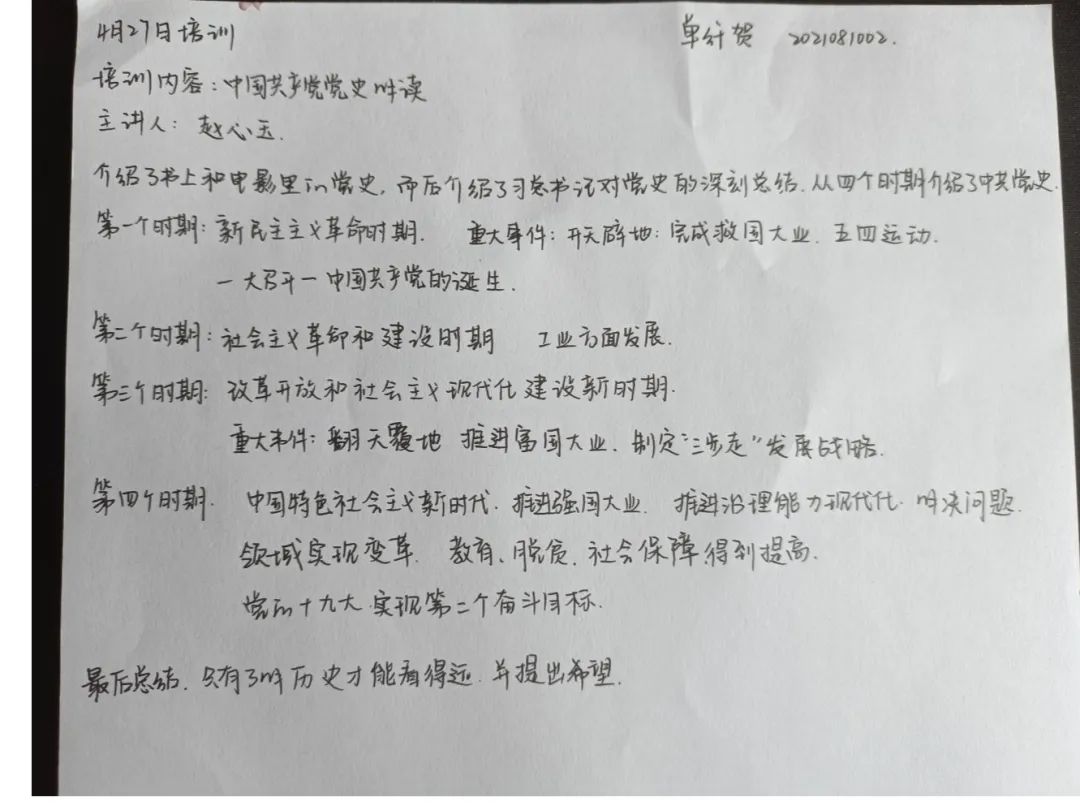 4月27日培训 单纤贺 2021081002.
培训内容：中国共产党党史解读
主讲人：赵心玉.
介绍了书上和电影里的党史，而后介绍了习总书记对党史的深刻总结.从四个时期介绍了中共党史.
第一个时期：新民主主义革命时期. 重大事件：开天辟地：完成救国大业.五四运动.
一大召开—中国共产党的诞生.
第二个时期：社会主义革命和建设时期 工业方面发展.
第三个时期：改革开放和社会主义现代化建设新时期.
重大事件：翻天覆地 推进富国大业.制定“三步走”发展战略.
第四个时期. 中国特色社会主义新时代.推进强国大业. 推进治理能力现代化.解决问题.
领域实现变革. 教育、脱贫.社会保障得到提高.
党的十九大实现第二个奋斗目标.
最后总结.只有了解历史才能看得远.并提出希望.